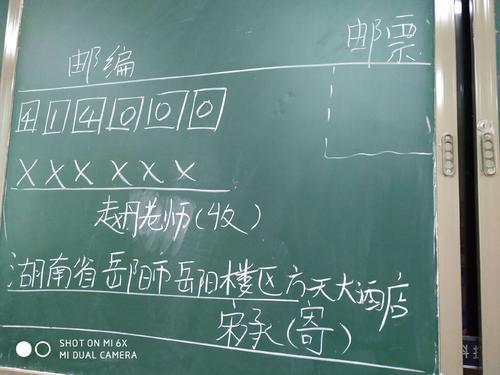 邮编 邮票
414000
XXXXXX
赵丹老师(收)
湖南省岳阳市岳阳楼区方天大酒店
(寄)
SHOT ON MI 6X
MI DUAL CAMERA